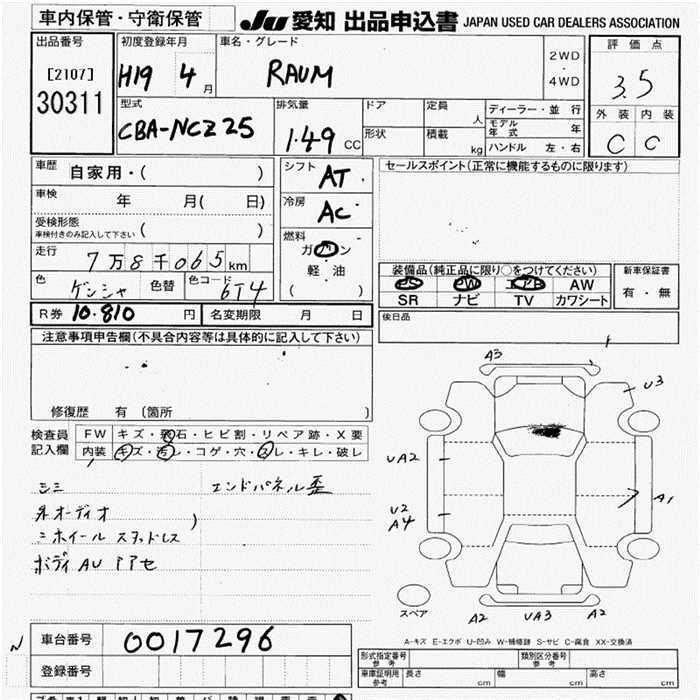 車内保管・守衛保管
JU 愛知 出品申込書 JAPAN USED CAR DEALERS ASSOCIATION
出品番号
[2107]
30311
初度登録年月
H19 4 月
車名・グレード
RAUM
2WD
・
4WD
評価点
3.5
外装 内装
C C
型式
CBA-NCZ25
排気量
1.49 CC
ドア
形状
定員 人
積載 kg
ディーラー・並行
モデル年式 年
ハンドル 左・右
車歴 自家用・( )
車検 年 月( 日)
受検形態
車検付きのみ記入して下さい ( )
走行 7万8千065km
色 ゲンシャ 色替 色コード 6T4
シフト AT
冷房 AC
燃料
ガソリン
軽・油
( )
セールスポイント(正常に機能するものに限ります)
装備品(純正品に限り○をつけてください)
PS PW エアB AW
SR ナビ TV カワシート
新車保証書
有・無
R券 10.810 円 名変期限 月 日
後日品
注意事項申告欄(不具合内容等は具体的に記入して下さい)
修復歴 有 〔箇所 〕
検査員
記入欄
FW キズ・飛石・ヒビ割・リペア跡・X要
内装 キズ・汚レ・コゲ・穴・スレ・キレ・破レ
シミ エンドパネル歪
オーディオ
ホイール スタッドレス
ボディ AU アアセ
A3
U3
UA2
U2
A4
A1
スペア
A2 UA3 A2
A-キズ E-エクボ U-凹み W-補修跡 S-サビ C-腐食 XX-交換済
車台番号 0017296
登録番号
型式指定番号
参考
類別区分番号
参考
車庫証明用
参考
長さ cm 幅 cm 高さ cm